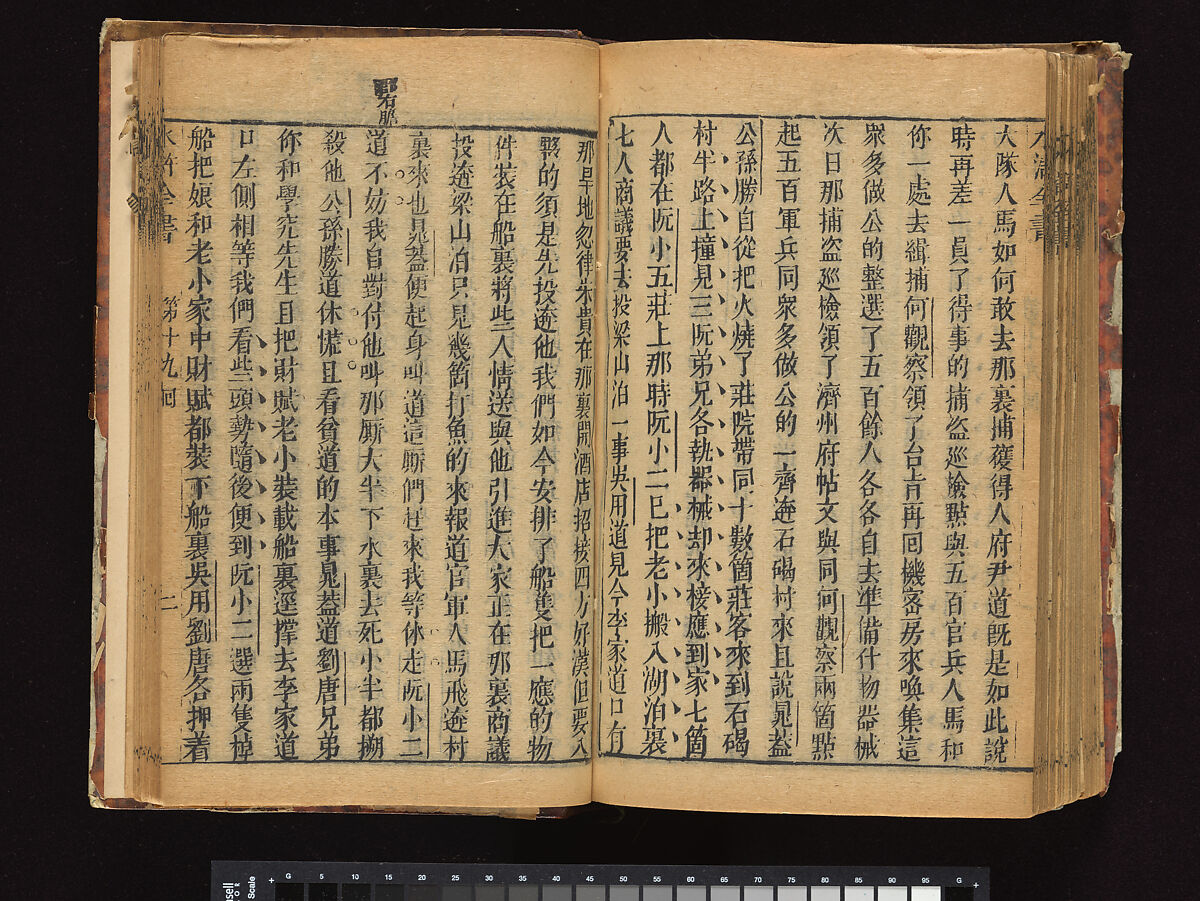 大隊人馬如何敢去那裏捕獲得人府尹道既是如此說
時再差一員了得事的捕盗廵檢點與五百官兵人馬和
你一處去緝捕何觀察領了台旨再回機密房來喚集這
衆多做公的整選了五百餘人各各自去準備什物器械
次日那捕盗廵檢領了濟州府帖文與同何觀察兩箇點
起五百軍兵同衆多做公的一齊迯石碣村來且說晁蓋
公孫勝自從把火燒了莊院帶同十數箇莊客來到石碣
村半路上撞見三阮弟兄各執器械却來接應到家七箇
人都在阮小五莊上那時阮小二已把老小搬入湖泊裏
七人商議要去投梁山泊一事吳用道見今李家道口有
那旱地忽律朱貴在那裏開酒店招接四方好漢但要入
夥的須是先投迯他我們如今安排了船隻把一應的物
件裝在船裏將些人情送與他引進大家正在那裏商議
投迯梁山泊只見幾箇打魚的來報道官軍人馬飛迯村
裏來也晁蓋便起身叫道這厮們赶來我等休走阮小二
道不妨我自對付他叫那厮大半下水裏去死小半都搠
殺他公孫勝道休慌且看貧道的本事晁蓋道劉唐兄弟
你和學究先生且把財賦老小裝載船裏逕撑去李家道
口左側相等我們看些頭勢隨後便到阮小二選兩隻棹
船把娘和老小家中財賦都裝下船裏吳用劉唐各押着
水滸全書
第十九回
二
水滸全書